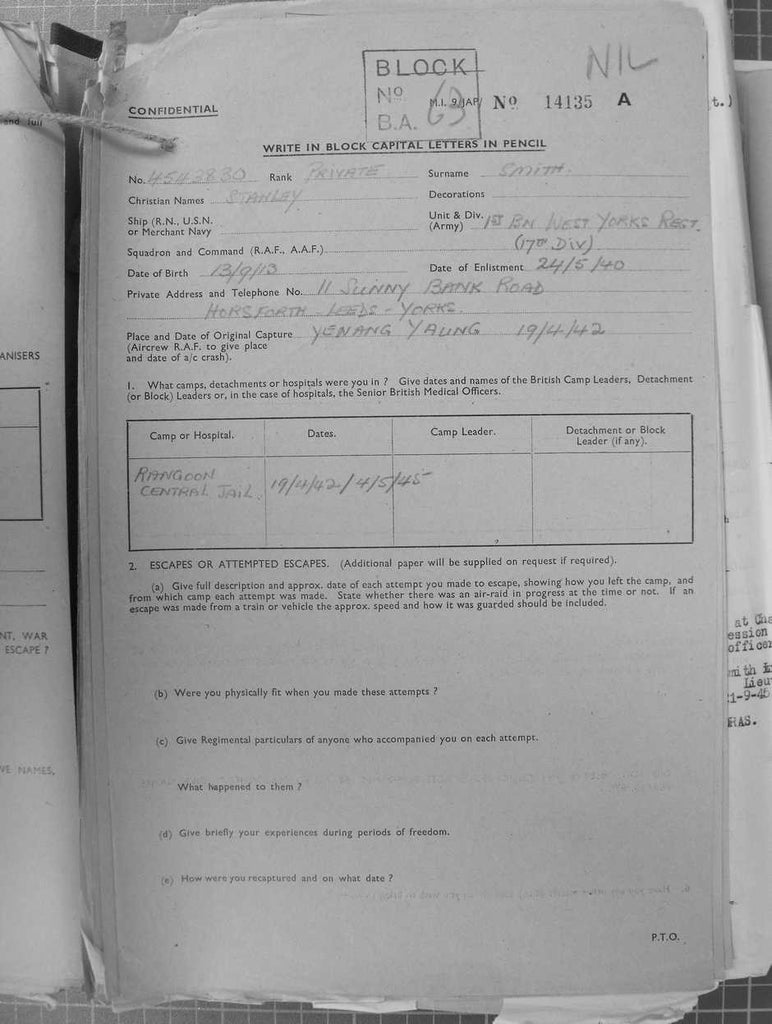 and full
ANISERS
NT, WAR
ESCAPE ?
VE NAMES,
BLOCK
NO 63
B.A.
NIL
CONFIDENTIAL
M.I. 9/JAP/ No 14135 A
t.)
WRITE IN BLOCK CAPITAL LETTERS IN PENCIL
No. 4543830 Rank PRIVATE Surname SMITH.
Christian Names STANLEY Decorations
Ship (R.N., U.S.N. or Merchant Navy
Unit & Div. (Army) 1ST BN WEST YORKS REGT.
(17TH DIV)
Squadron and Command (R.A.F., A.A.F.)
Date of Birth 13/9/13 Date of Enlistment 24/5/40
Private Address and Telephone No. 11 SUNNY BANK ROAD
HORSFORTH - LEEDS - YORKS.
Place and Date of Original Capture YENANG YAUNG 19/4/42
(Aircrew R.A.F. to give place
and date of a/c crash).
1. What camps, detachments or hospitals were you in ? Give dates and names of the British Camp Leaders, Detachment
(or Block) Leaders or, in the case of hospitals, the Senior British Medical Officers.
Camp or Hospital. Dates. Camp Leader. Detachment or Block
Leader (if any).
RANGOON
CENTRAL JAIL. 19/4/42/4/5/45
2. ESCAPES OR ATTEMPTED ESCAPES. (Additional paper will be supplied on request if required).
(a) Give full description and approx. date of each attempt you made to escape, showing how you left the camp, and
from which camp each attempt was made. State whether there was an air-raid in progress at the time or not. If an
escape was made from a train or vehicle the approx. speed and how it was guarded should be included.
(b) Were you physically fit when you made these attempts ?
(c) Give Regimental particulars of anyone who accompanied you on each attempt.
What happened to them ?
(d) Give briefly your experiences during periods of freedom.
(e) How were you recaptured and on what date ?
P.T.O.
at Cha
ession
officer
mith
Lieu
1-9-46
HAS.